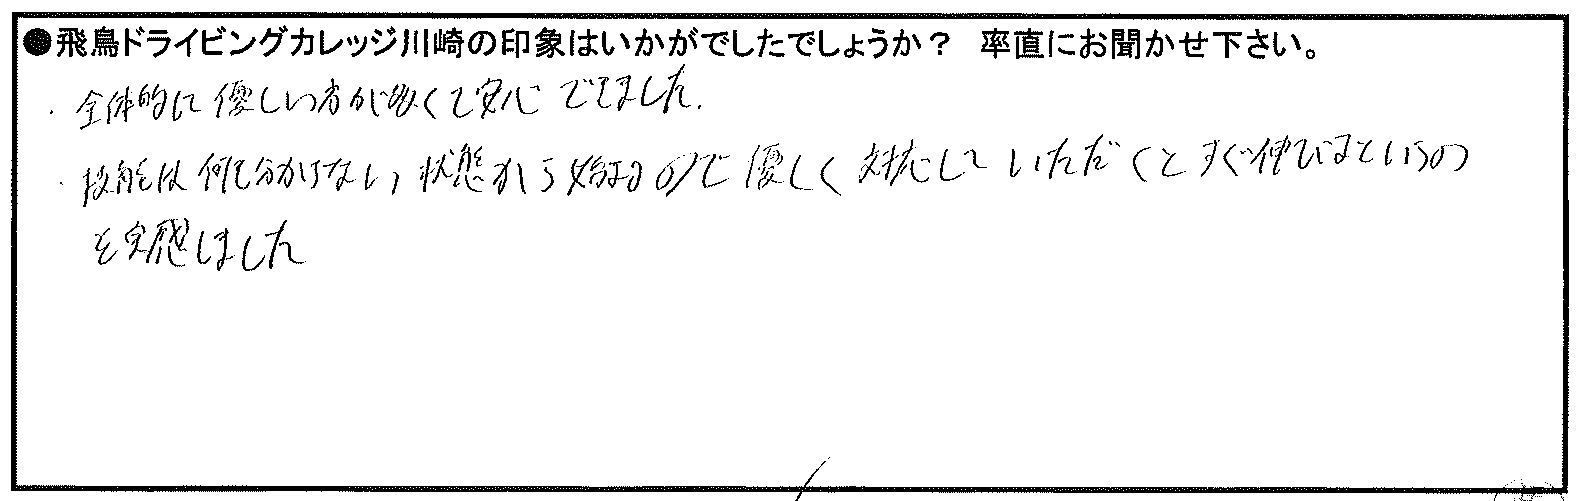 ●飛鳥ドライビングカレッジ川崎の印象はいかがでしたでしょうか？　率直にお聞かせ下さい。
・全体的に優しい方が多くて安心できました。
・技能は何も分からない状態から始まるので優しく対応していただくとすぐ伸びるというの
を実感しました